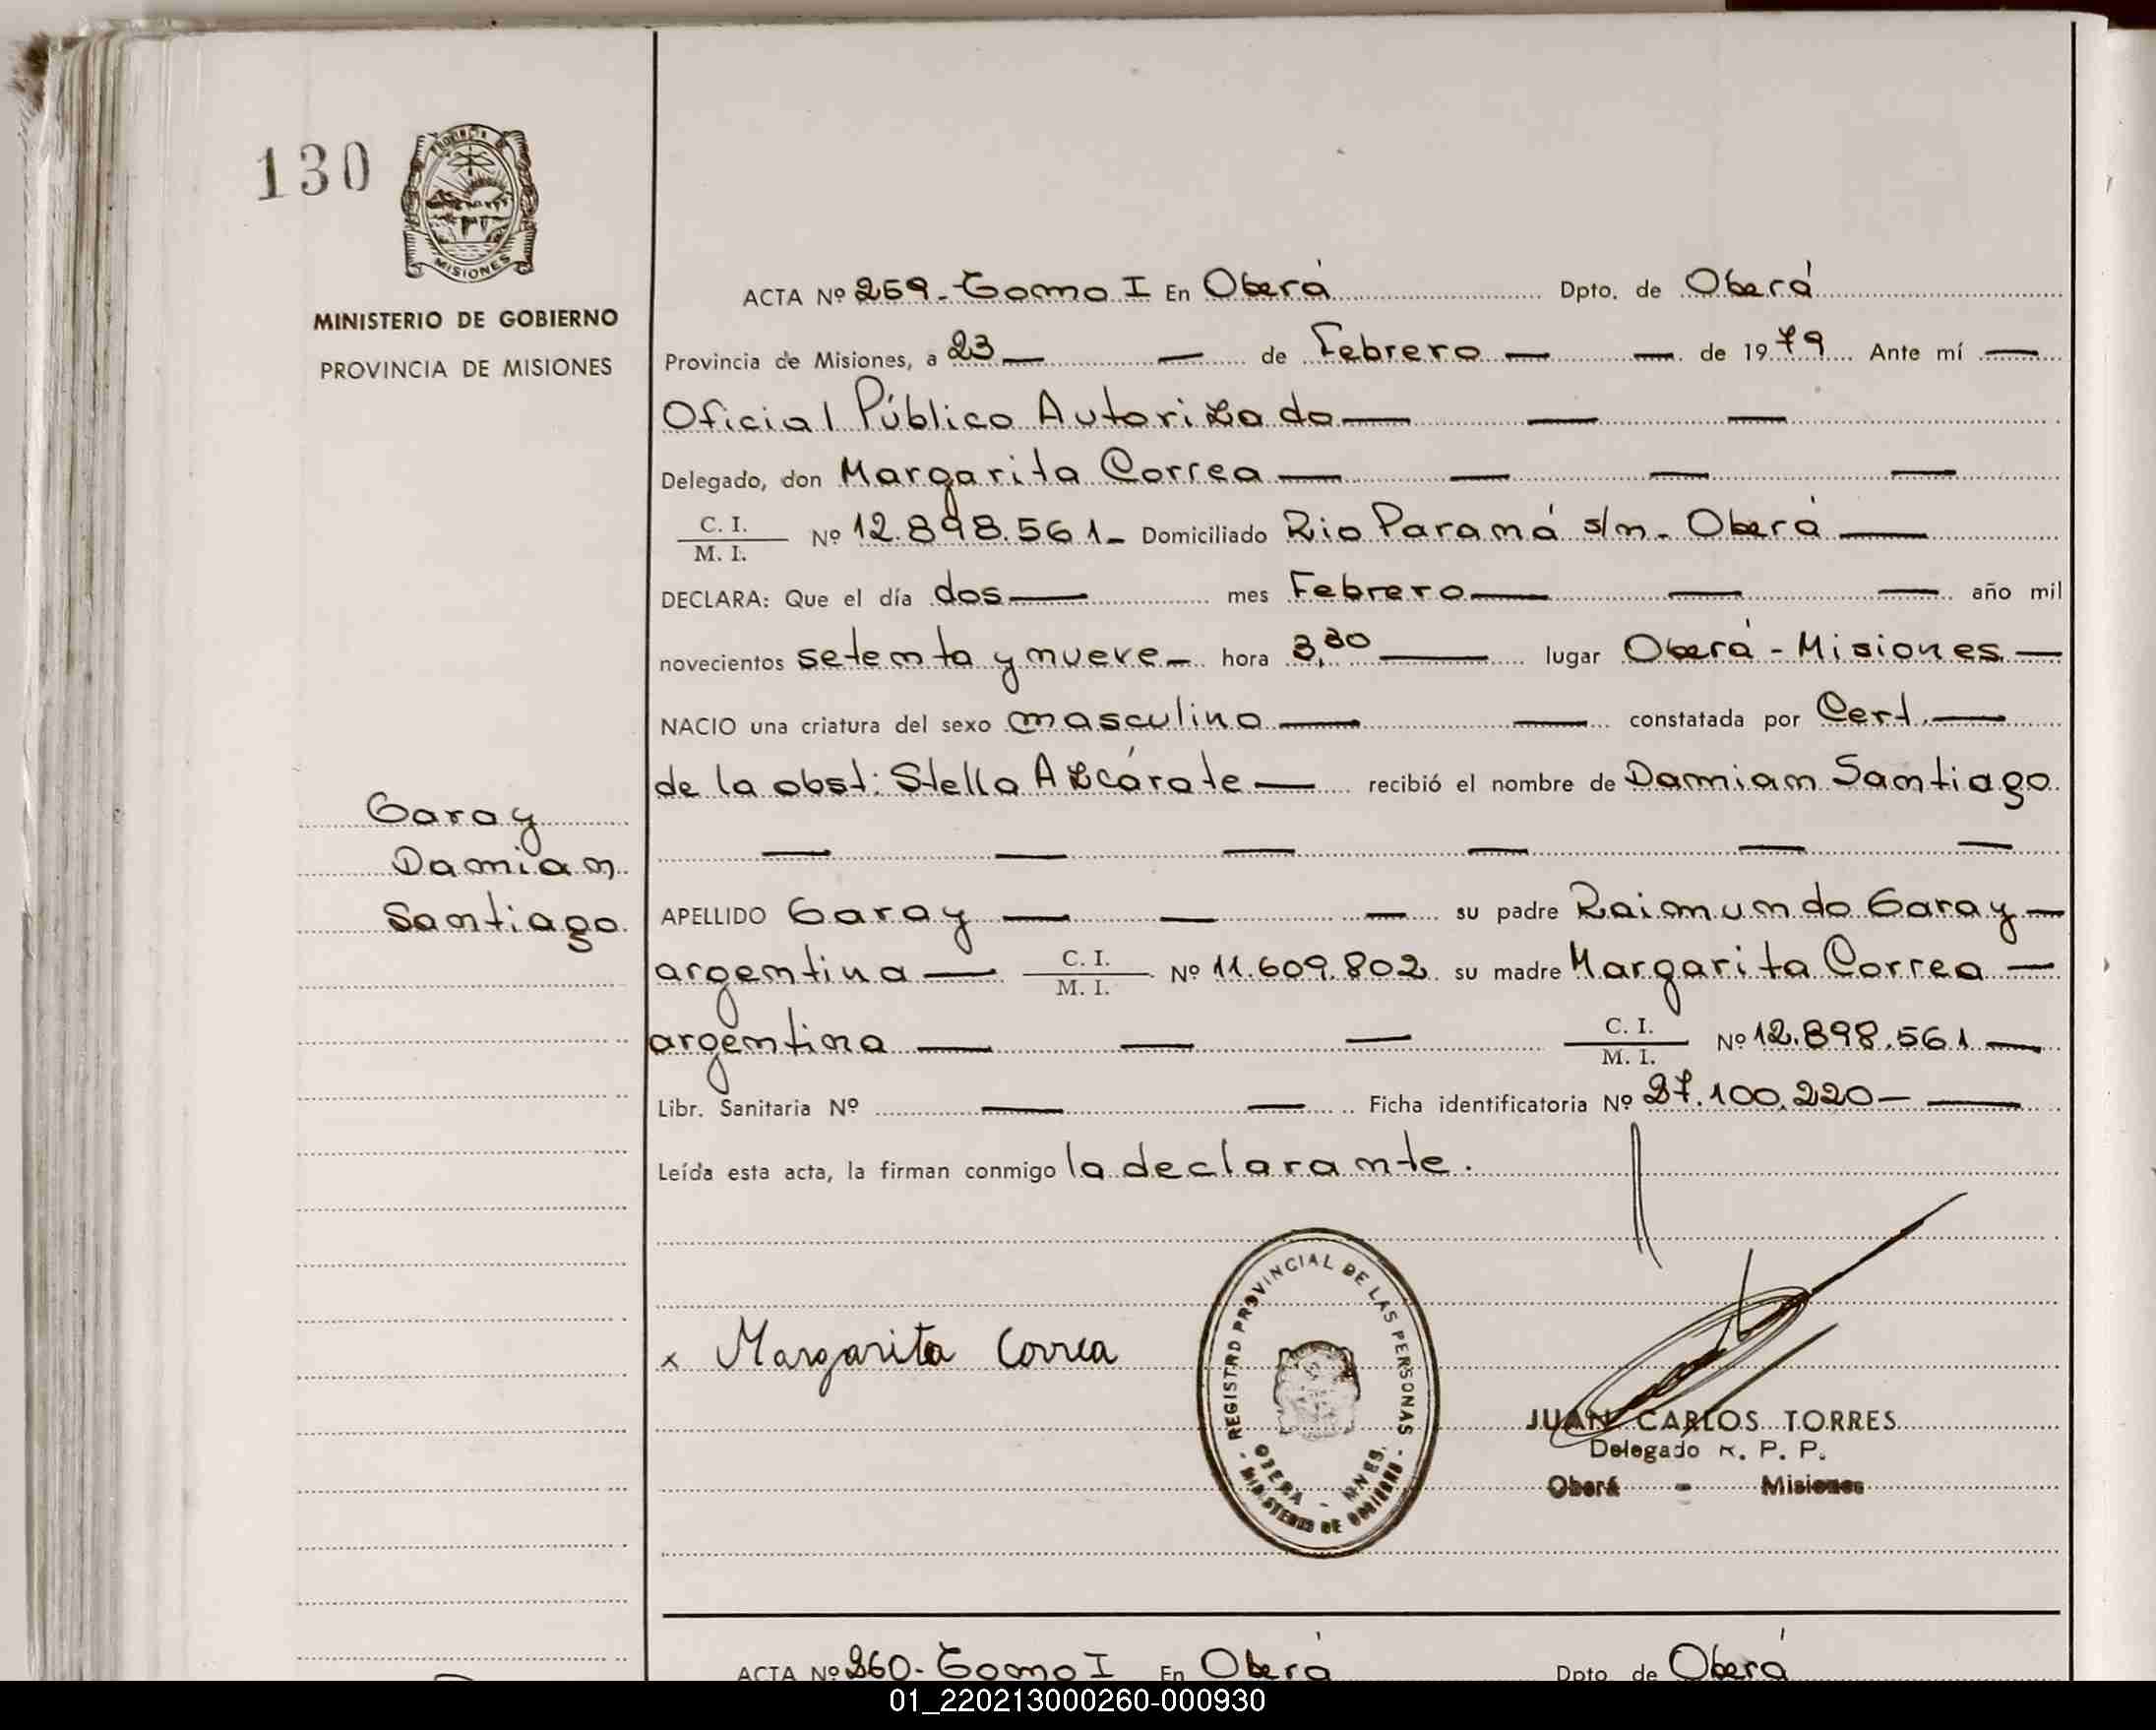 130
PROVINCIA
MISIONES
MINISTERIO DE GOBIERNO
PROVINCIA DE MISIONES
Garay
Damian
Santiago
ACTA Nº 259 - Tomo I En Oberá Dpto. de Oberá
Provincia de Misiones, a 23 — — de Febrero — — de 1979 Ante mí —
Oficial Público Autorizado — — —
Delegado, don Margarita Correa — — — —
C. I. / M. I. Nº 12.898.561 - Domiciliado Rio Paraná s/n - Oberá —
DECLARA: Que el día dos — mes Febrero — — — año mil
novecientos setenta y nueve - hora 3,30 — lugar Oberá - Misiones —
NACIO una criatura del sexo masculino — — constatada por Cert. —
de la obst: Stella Azcárate — recibió el nombre de Damian Santiago
— — — — — —
APELLIDO Garay — — — su padre Raimundo Garay —
argentina — C. I. / M. I. Nº 11.609.802 su madre Margarita Correa —
argentina — — — C. I. / M. I. Nº 12.898.561 —
Libr. Sanitaria Nº — — Ficha identificatoria Nº 27.100.220 — —
Leída esta acta, la firman conmigo la declarante.
x Margarita Correa
- REGISTRO PROVINCIAL DE LAS PERSONAS -
OBERA - MNES.
MINISTERIO DE GOBIERNO
JUAN CARLOS TORRES
Delegado R. P. P.
Oberá - Misiones
ACTA Nº 260 - Tomo I En Oberá Dpto. de Oberá
01_220213000260-000930